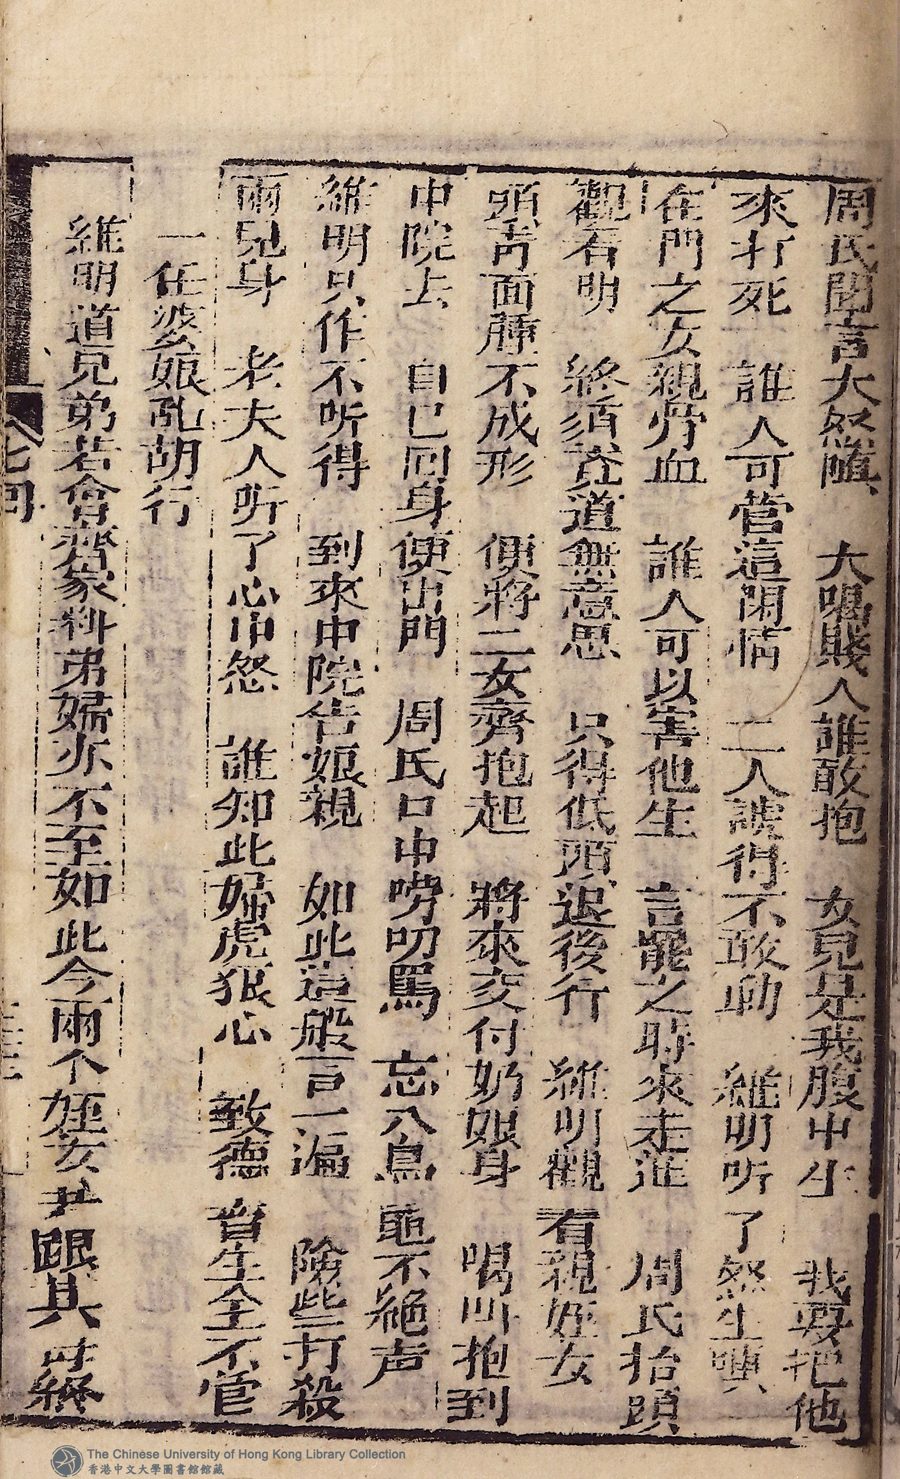 周氏聞言大怒嗔 大喝賤人誰敢抱 女兒是我腹中生 我要把他
來打死 誰人可管這閑情 二人諕得不敢動 維明听了怒生嗔
在門之女親骨血 誰人可以害他生 言罷之時來走進 周氏抬頭
觀看明 終須竟道無意思 只得低頭退後行 維明觀看親姪女
頭青面腫不成形 便將二女齊抱起 將來交付奶娘身 喝叫抱到
中院去 自己回身便出門 周氏口中嘮叨罵 忘八鳥龜不絕声
維明只作不听得 到來中院告娘親 如此這般言一遍 險些打殺
兩兒身 老夫人听了心中怒 誰知此婦虎狠心 致德畜生全不管
一任婆娘乱胡行
維明道兄弟若會齊家料弟婦亦不至如此今兩个姪女才跟其母終
七回
The Chinese University of Hong Kong Library Collection
香港中文大學圖書館館藏